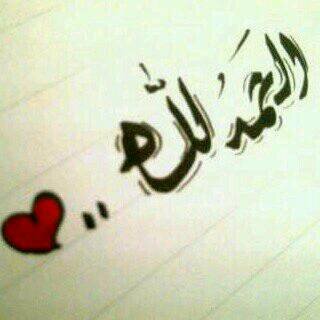 الحمدُ للّه ..